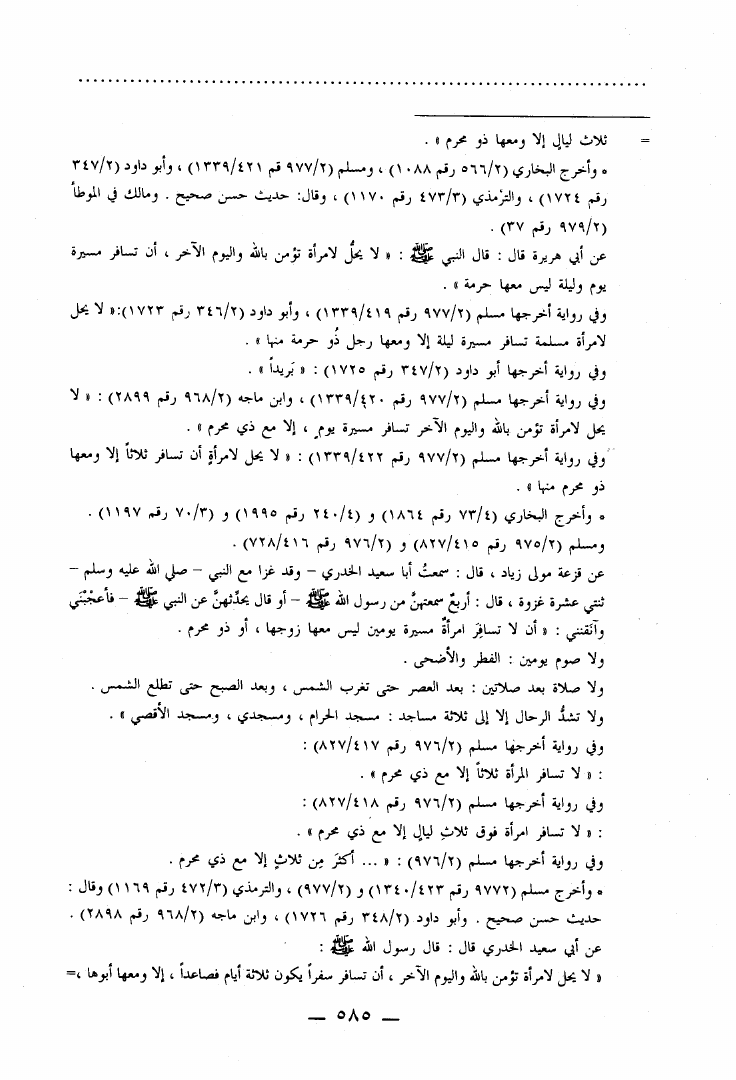 = ثلاث ليالٍ إلا ومعها ذو محرم » .
٥ وأخرج البخاري (٥٦٦/٢ رقم ١٠٨٨) ، ومسلم (٩٧٧/٢ قم ١٣٣٩/٤٢١) ، وأبو داود (٣٤٧/٢
رقم ١٧٢٤) ، والترمذي (٤٧٣/٣ رقم ١١٧٠) ، وقال: حديث حسن صحيح . ومالك في الموطأ
(٩٧٩/٢ رقم ٣٧) .
عن أبي هريرة قال : قال النبي ﷺ : « لا يحلُّ لامرأة تؤمن بالله واليوم الآخر ، أن تسافر مسيرة
يوم وليلة ليس معها حرمة » .
وفي رواية أخرجها مسلم (٩٧٧/٢ رقم ١٣٣٩/٤١٩) ، وأبو داود (٣٤٦/٢ رقم ١٧٢٣):« لا يحل
لامرأة مسلمة تسافر مسيرة ليلة إلا ومعها رجل ذُو حرمة منها » .
وفي رواية أخرجها أبو داود (٣٤٧/٢ رقم ١٧٢٥) : « بَريداً » .
وفي رواية أخرجها مسلم (٩٧٧/٢ رقم ١٣٣٩/٤٢٠) ، وابن ماجه (٩٦٨/٢ رقم ٢٨٩٩) : « لا
يحل لامرأة تؤمن بالله واليوم الآخر تسافر مسيرة يومٍ ، إلا مع ذي محرم » .
وفي رواية أخرجها مسلم (٩٧٧/٢ رقم ١٣٣٩/٤٢٢) : « لا يحل لامرأةٍ أن تسافر ثلاثاً إلا ومعها
ذو محرم منها » .
٥ وأخرج البخاري (٧٣/٤ رقم ١٨٦٤) و (٢٤٠/٤ رقم ١٩٩٥) و (٧٠/٣ رقم ١١٩٧) .
ومسلم (٩٧٥/٢ رقم ٨٢٧/٤١٥) و (٩٧٦/٢ رقم ٧٢٨/٤١٦) .
عن قزعة مولى زياد ، قال : سمعتُ أبا سعيد الخدري – وقد غزا مع النبي – صلي الله عليه وسلم –
ثنتي عشرة غزوة ، قال : أربعٌ سمعتهنَّ من رسول الله ﷺ – أو قال يحدِّثهنَّ عن النبي ﷺ – فأعجْبنَني
وآنَقنني : « أن لا تسافِرَ امرأةٌ مسيرة يومين ليس معها زوجها ، أو ذو محرم .
ولا صوم يومين : الفطر والأضحى .
ولا صلاة بعد صلاتين : بعد العصر حتى تغرب الشمس ، وبعد الصبح حتى تطلع الشمس .
ولا تشدُّ الرحال إلا إلى ثلاثة مساجد : مسجد الحرام ، ومسجدي ، ومسجد الأقصي » .
وفي رواية أخرجها مسلم (٩٧٦/٢ رقم ٨٢٧/٤١٧) :
: « لا تسافر المرأة ثلاثاً إلا مع ذي محرم » .
وفي رواية أخرجها مسلم (٩٧٦/٢ رقم ٨٢٧/٤١٨) :
: « لا تسافر امرأة فوق ثلاثِ ليالٍ إلا مع ذي محرم » .
وفي رواية أخرجها مسلم (٩٧٦/٢) : « ... أكثَرَ مِن ثلاثٍ إلا مع ذي محرم .
٥ وأخرج مسلم (٩٧٧٢ رقم ١٣٤٠/٤٢٣) و (٩٧٧/٢) ، والترمذي (٤٧٢/٣ رقم ١١٦٩) وقال :
حديث حسن صحيح . وأبو داود (٣٤٨/٢ رقم ١٧٢٦) ، وابن ماجه (٩٦٨/٢ رقم ٢٨٩٨) .
عن أبي سعيد الخدري قال : قال رسول الله ﷺ :
« لا يحل لامرأة تؤمن بالله واليوم الآخر ، أن تسافر سفراً يكون ثلاثة أيام فصاعداً ، إلا ومعها أبوها ،=
— ٥٨٥ —